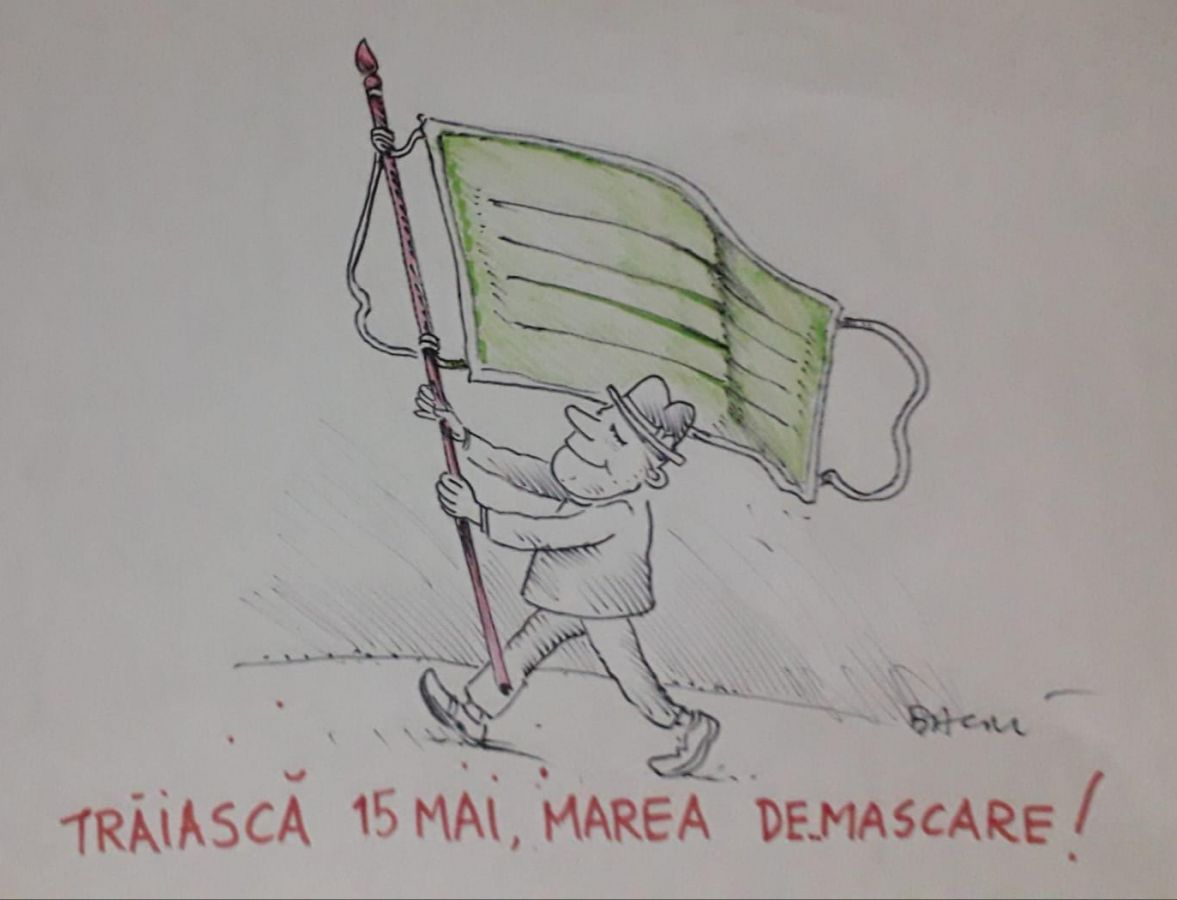 TRĂIASCĂ 15 MAI, MAREA DE..MASCARE!